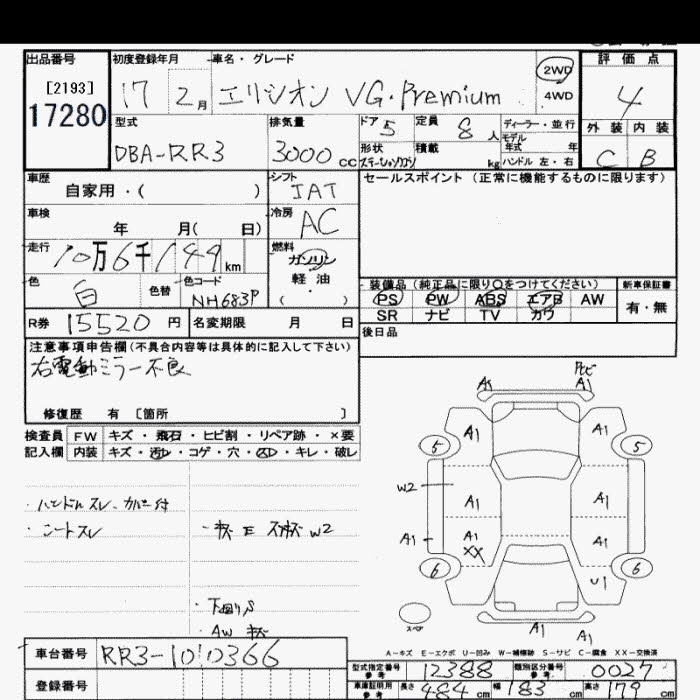 出品番号 初度登録年月 車名・グレード 評価点
[2193]
17280
17 2月 エリシオン VG・Premium 2WD 4
4WD
外装 内装
C B
型式 排気量 ドア 定員 ディーラー・並行
DBA-RR3 3000cc 5 8人 モデル年式 年
形状 積載 kg ハンドル 左・右
車歴 シフト セールスポイント (正常に機能するものに限ります)
自家用・( ) IAT
車検 冷房
年 月( 日) AC
走行 燃料
10万6千149km ガソリン
軽油
( )
色 色替 色コード
白 NH683P
装備品(純正品に限り○をつけてください) 新車保証書
PS PW ABS エアB AW 有・無
SR ナビ TV カワ
R券 15520円 名変期限 月 日
後日品
注意事項申告欄(不具合内容等は具体的に記入して下さい)
右電動ミラー不良
修復歴 有 [箇所 ]
検査員 FW キズ・飛石・ヒビ割・リペア跡・×要
記入欄 内装 キズ・汚れ・コゲ・穴・スレ・キレ・破レ
・ハンドルスレ、カバー付
・シートスレ
W2
・下廻りS
・AW キズ
A1 A1
A1 A1
5 5
W2
A1 A1
A1 A1 A1
XX
6 6
U1
スペア
A1 A1
A-キズ E-エクボ U-凹み W-補修跡 S-サビ C-腐食 XX-交換済
車台番号 RR3-1010366
登録番号
型式指定番号 参考 12388 類別区分番号 参考 0027
車庫証明用 参考 長さ 484cm 幅 183cm 高さ 179cm